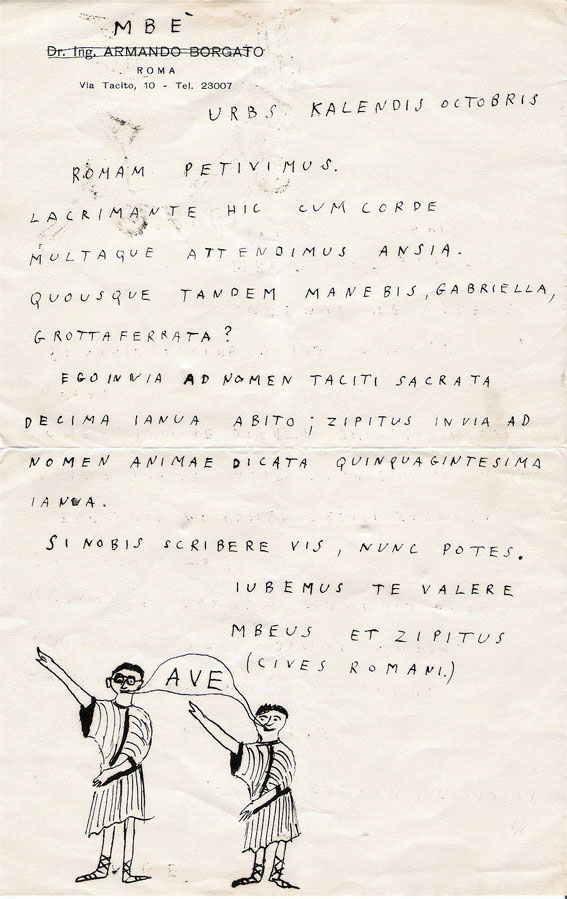 MBÈ
Dr. Ing. ARMANDO BORGATO
ROMA
Via Tacito, 10 - Tel. 23007
URBS KALENDIS OCTOBRIS
ROMAM PETIVIMUS.
LACRIMANTE HIC CUM CORDE
MULTAQUE ATTENDIMUS ANSIA.
QUOUSQUE TANDEM MANEBIS, GABRIELLA,
GROTTAFERRATA?
EGO IN VIA AD NOMEN TACITI SACRATA
DECIMA IANUA ABITO; ZIPITUS IN VIA AD
NOMEN ANIMAE DICATA QUINQUAGINTESIMA
IANUA.
SI NOBIS SCRIBERE VIS, NUNC POTES.
IUBEMUS TE VALERE
MBEUS ET ZIPITUS
(CIVES ROMANI.)
AVE